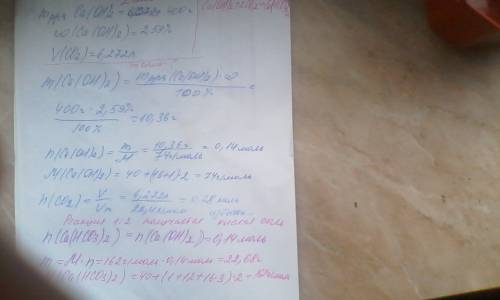 Ca(OH)₂ = 400г
ω(Ca(OH)₂) = 2,59%
V(CO₂) = 6,272л
m(Ca(OH)₂) = · ω / 100% =
400г · 2,59% / 100% = 10,36г
n(Ca(OH)₂) = m/M = 10,36г / 74г/моль = 0,14моль
M(Ca(OH)₂) = 40+(16+1)·2 = 74г/моль
n(CO₂) = V/Vm = 6,272л / 22,4л/моль = 0,28моль
Реакция 1:2 кислая соль
n(Ca(HCO₃)₂) = n(Ca(OH)₂) = 0,14моль
m = M · n = 162г/моль · 0,14моль = 22,68г
(Ca(HCO₃)₂) = 40+(1+12+16·3)·2 = 162г/моль